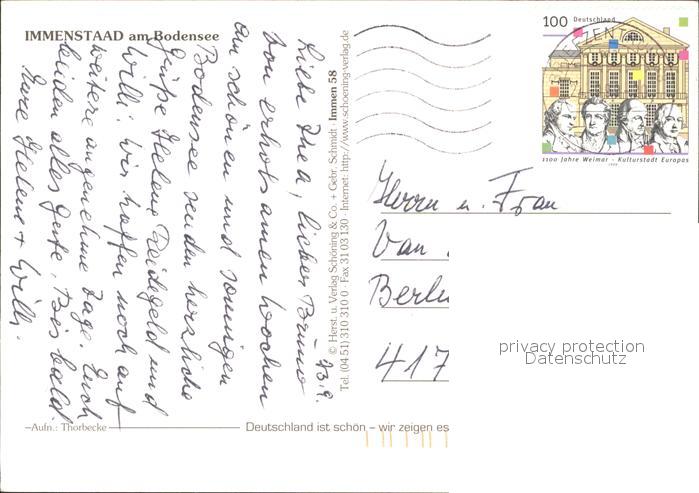 IMMENSTAAD am Bodensee
Liebe Thea, lieber Bruno 13.9.
Von erholsamen Wochen
am schönen und sonnigen
Bodensee senden herzliche
Grüße Helene Heidegeld und
Willi. Wir hoffen noch auf
weitere angenehme Tage. Euch
beiden alles Gute. Bis bald
Eure Helene + Willi.
Aufn.: Thorbecke
© Herst. u. Verlag Schöning & Co. + Gebr. Schmidt · Immen 58
Tel. (04 51) 310 310 0 · Fax 31 03 130 · Internet: http://www.schoening-verlag.de
Deutschland ist schön – wir zeigen es
100 Deutschland
1100 Jahre Weimar - Kulturstadt Europas
1999
Herrn u. Frau
Van
Berli
417
privacy protection
Datenschutz